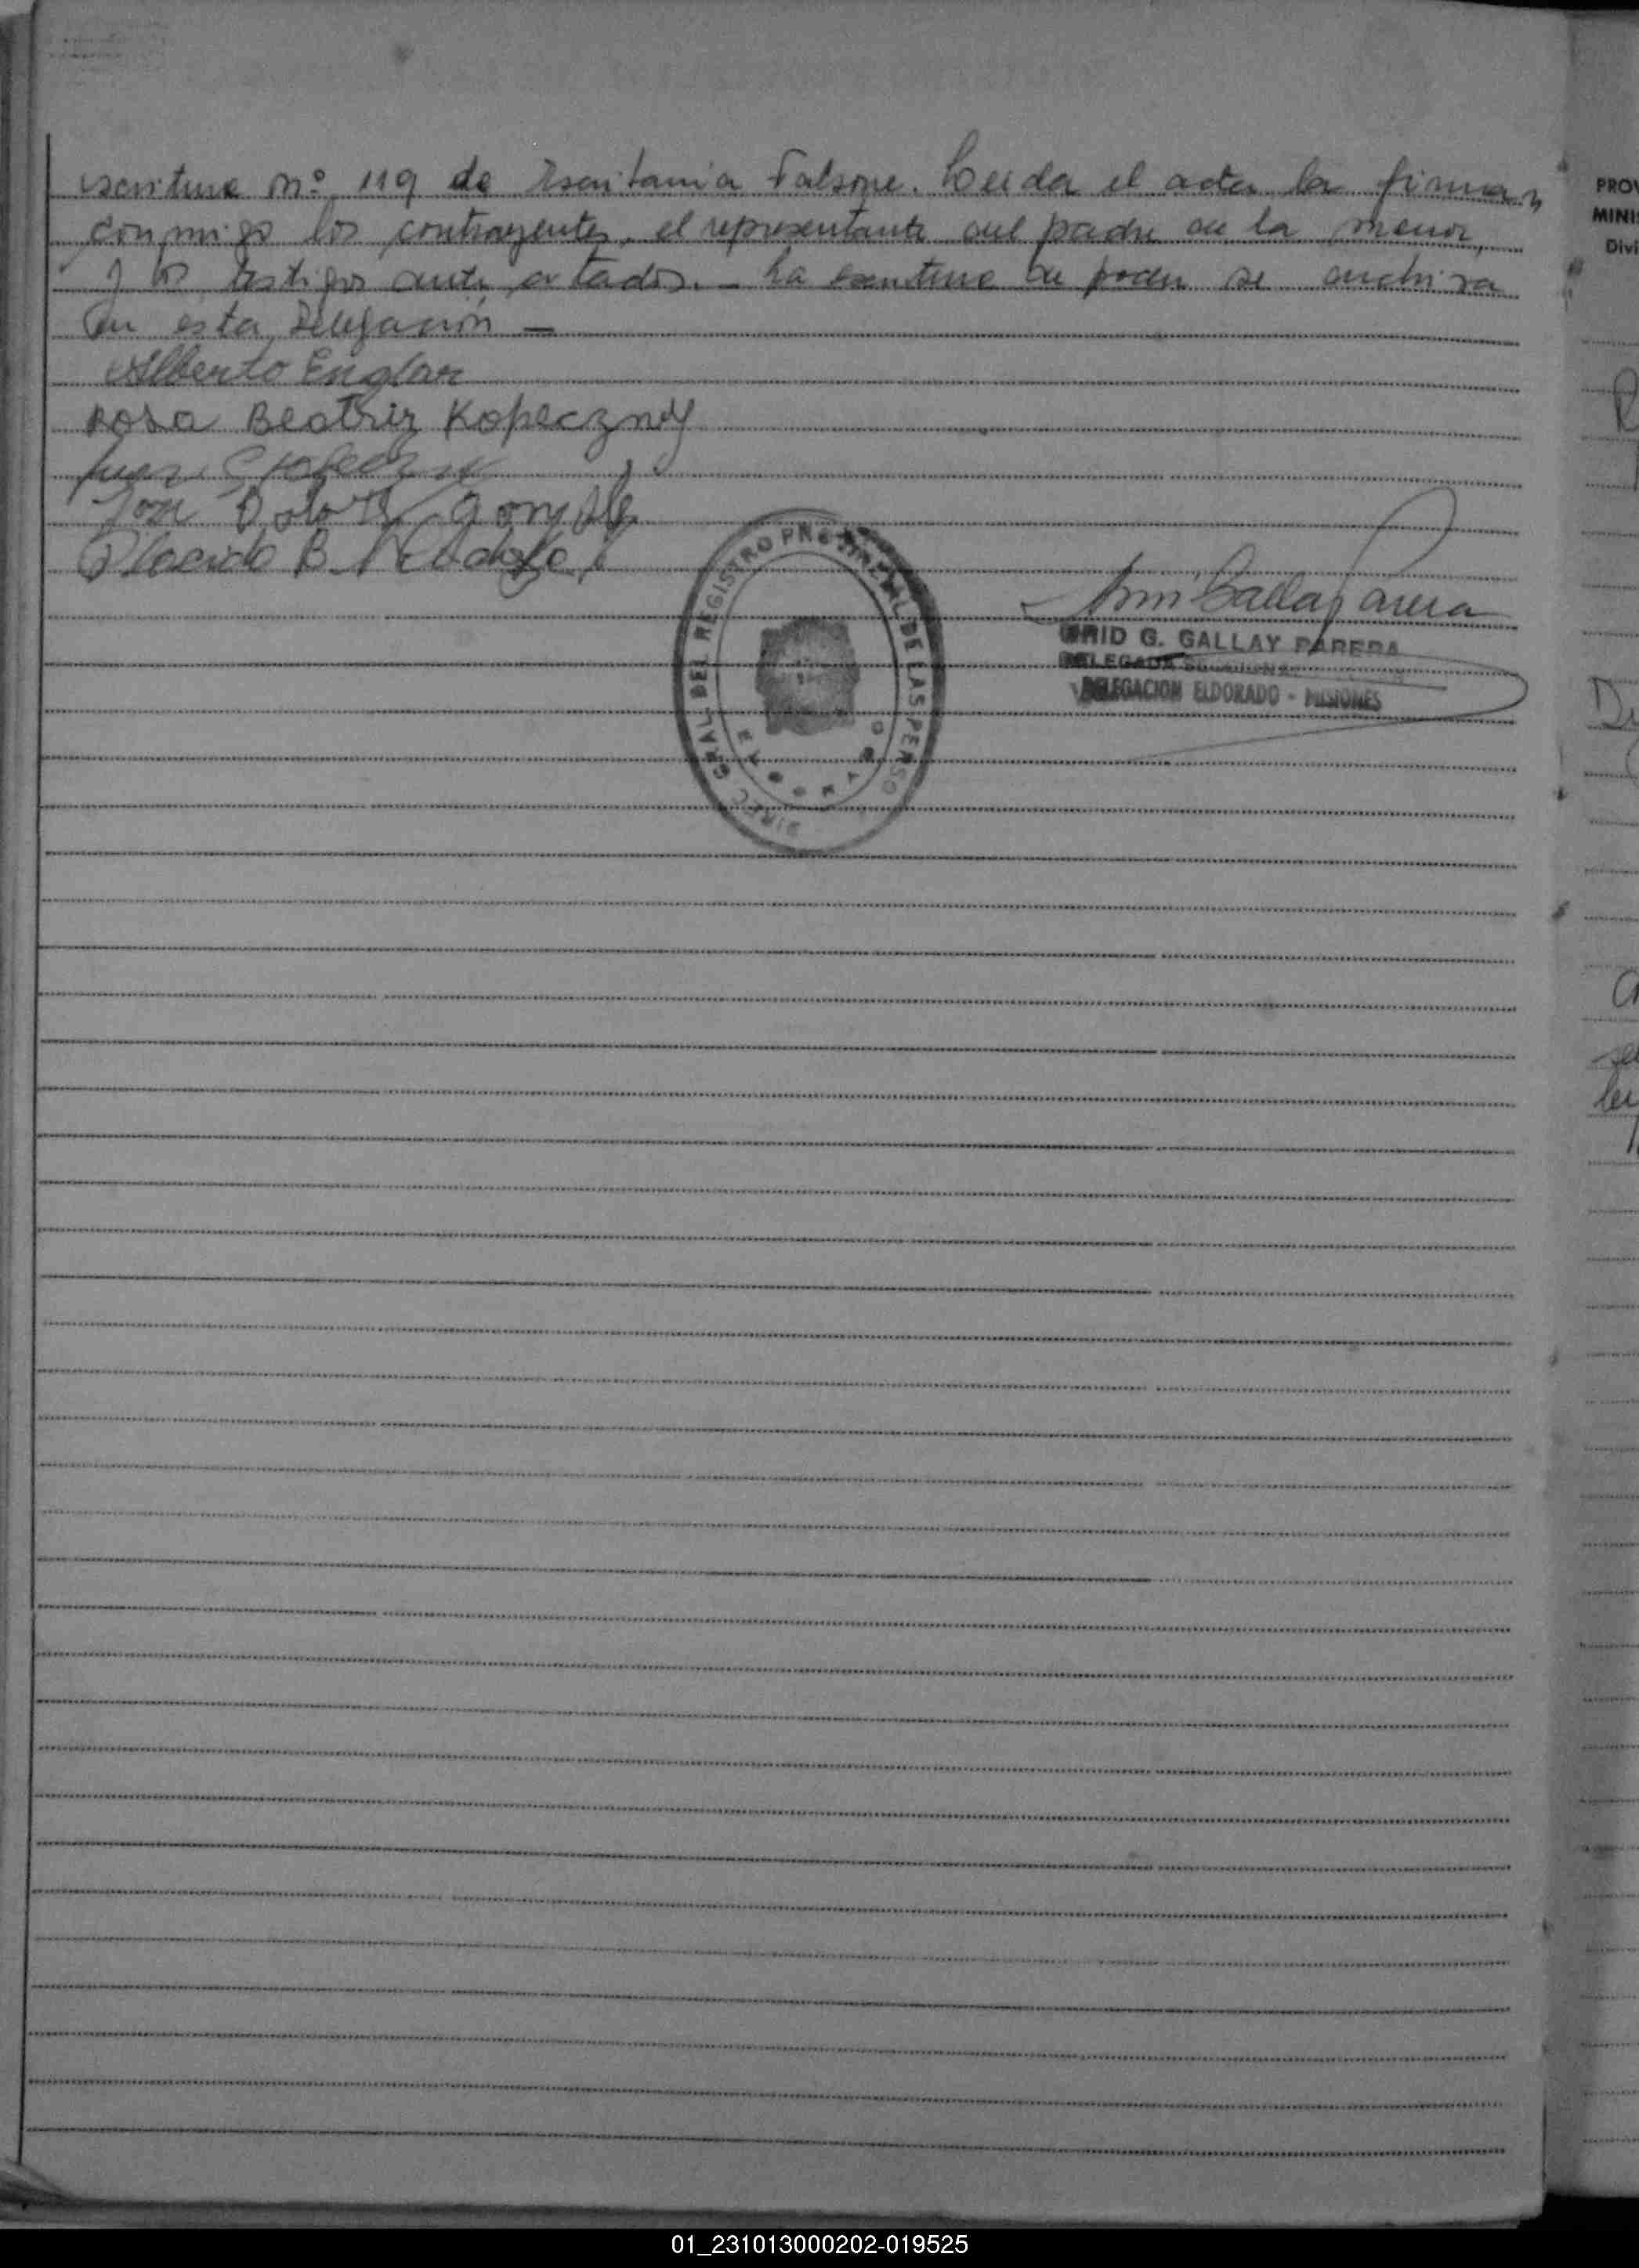 escritura nº 119 de Escribania Falsone. Leida el acta la firman
conmigo los contrayentes, el representante del padre de la menor,
y los testigos ante citados. - La escritura de poder se archiva
en esta Delegación —
Alberto Englar
Rosa Beatriz Kopeczndy
Jose Dolores Gonzalez
Placido B.
DIREC. GRAL. DEL REGISTRO PROVINCIAL DE LAS PERSO
Gallay Parera
G. GALLAY PARERA
DELEGADA
DELEGACION ELDORADO - MISIONES
PROV
MINIS
Divi
01_231013000202-019525